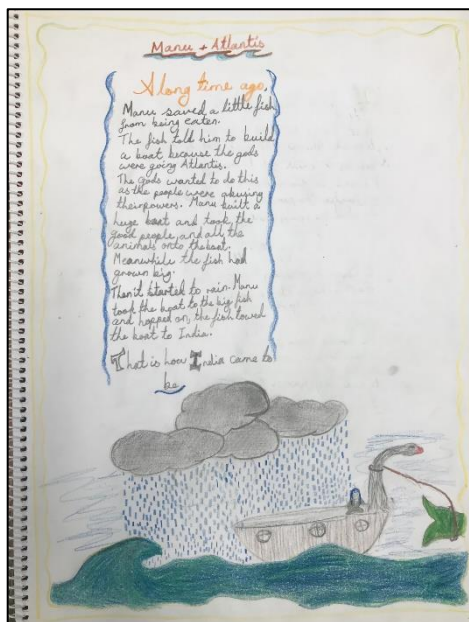 Manu + Atlantis
A long time ago,
Manu saved a little fish
from being eaten.
The fish told him to build
a boat because the gods
were going Atlantis.
The gods wanted to do this
as the people were abusing
their powers. Manu built a
huge boat and took the
good people and all the
animals onto the boat.
Meanwhile the fish had
grown big.
Then it started to rain. Manu
took the boat to the big fish
and hopped on, the fish towed
the boat to India.
That is how India came to
be